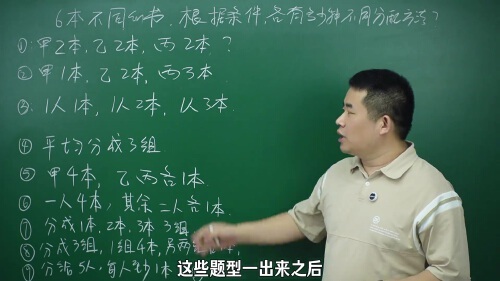 6本不同的书,根据条件,各有多少种不同分配方法?
①:甲2本,乙2本,丙2本.?
②甲1本,乙2本,丙3本.
③:1人1本,1人2本,1人3本.
④平均分成3组
⑤甲4本,乙丙各1本
⑥一人4本,其余二人各1本.
⑦分成1本,2本.3本3组
⑧分成3组,1组4本,另两组
⑨分给5人.每人至少1本
这些题型一出来之后